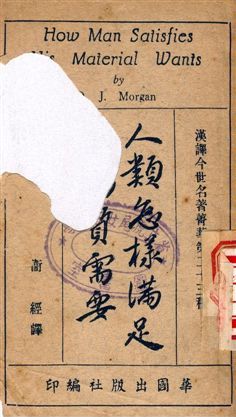 How Man Satisfies
His Material Wants
by
J. Morgan
漢譯今世名著菁華第二十三種
人類怎樣滿足
質需要
衡經譯
華國出版社編印